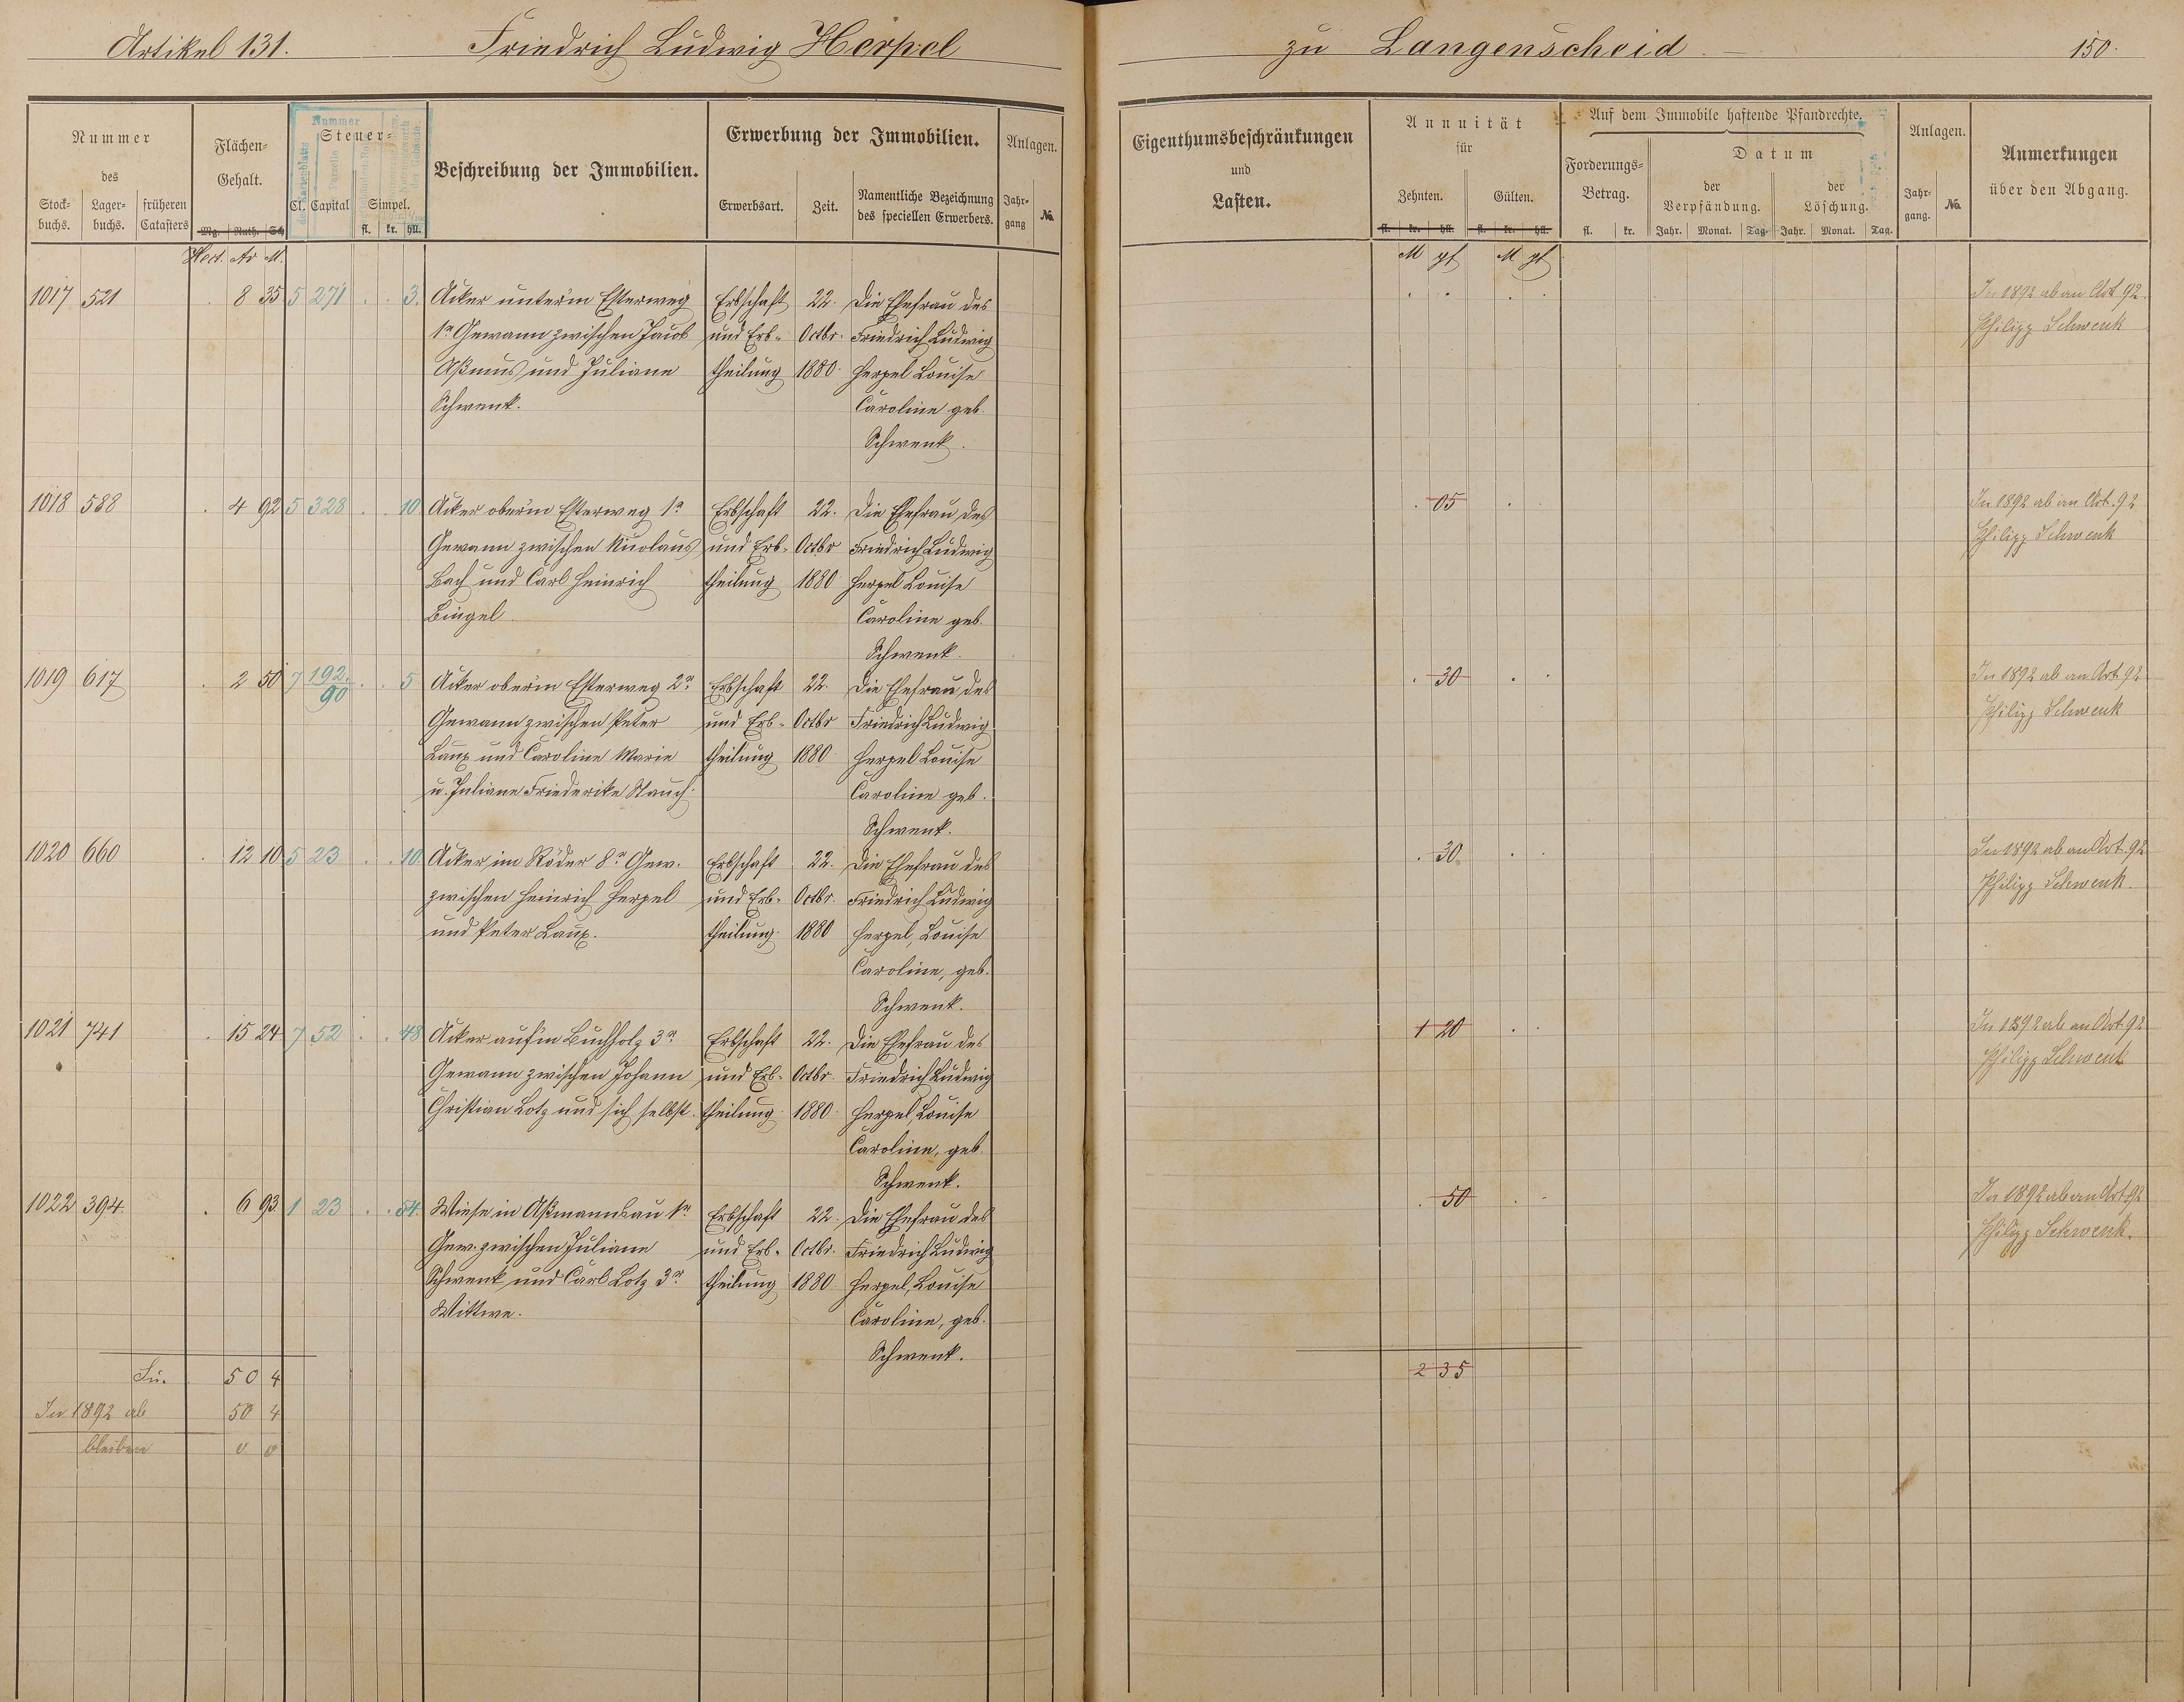 Artikel 131. Friedrich Ludwig Herpel zu Langenscheid. 150.
Nummer des
Stock=buchs. Lager=buchs. früheren Catasters
Flächen=Gehalt.
Mg. Ruth. Sch
Steuer=
Cl. Capital Simpel.
fl. kr. hll.
Nummer
Beschreibung der Immobilien.
Erwerbung der Immobilien.
Erwerbsart. Zeit. Namentliche Bezeichnung des speciellen Erwerbers.
Anlagen.
Jahr=gang №
Eigenthumsbeschränkungen und Lasten.
Annuität für
Zehnten. Gülten.
fl. kr. hll. fl. kr. hll.
Auf dem Immobile haftende Pfandrechte.
Forderungs=Betrag.
Datum
der Verpfändung. der Löschung.
fl. kr. Jahr. Monat. Tag. Jahr. Monat. Tag.
Anlagen.
Jahr=gang. №
Anmerkungen über den Abgang.
Hect. Ar M. M pf M pf
1017 521 8 35 5 271 3. Acker unter'm Esterweg Erbschaft 22. Die Ehefrau des In 1892 ab an Art 92
1r Gewann zwischen Jacob und Erb- Octbr. Friedrich Ludwig Philipp Schwenk
Aßmus und Juliane theilung 1880. Herpel Louise
Schwenk. Caroline geb.
Schwenk.
1018 588 4 92 5 328 10 Acker ober'm Esterweg 1r Erbschaft 22. Die Ehefrau des 05 In 1892 ab an Art. 92
Gewann zwischen Nicolaus und Erb- Octbr Friedrich Ludwig Philipp Schwenk
Bach und Carl Heinrich theilung 1880 Herpel Louise
Bingel. Caroline geb.
Schwenk.
1019 617 2 50 7 192./90 5 Acker ober'm Esterweg 2r Erbschaft 22. Die Ehefrau des 30 In 1892 ab an Art 92
Gewann zwischen Peter und Erb- Octbr Friedrich Ludwig Philipp Schwenk
Laux und Caroline Marie theilung 1880 Herpel Louise
u. Juliane Friederike Stauch. Caroline geb.
Schwenk.
1020 660 12 10 5 23 10 Acker im Röder 8r Gew. Erbschaft 22. Die Ehefrau des 30. In 1892 ab an Art. 92
zwischen Heinrich Herpel und Erb- Octbr. Friedrich Ludwig Philipp Schwenk.
und Peter Laux. theilung 1880 Herpel, Louise
Caroline, geb.
Schwenk.
1021 741 15 24 7 52 48 Acker auf'm Buchholz 3r Erbschaft 22. Die Ehefrau des 1 20 In 1892 ab an Art. 92
Gewann zwischen Johann und Erb- Octbr. Friedrich Ludwig Philipp Schwenk
Christian Lotz und sich selbst. theilung 1880. Herpel, Louise
Caroline, geb.
Schwenk.
1022 394. 6 93. 1 23 54. Wiese in Aßmannsau 1r Erbschaft 22. Die Ehefrau des 50 In 1892 ab an Art 92
Gew. zwischen Juliane und Erb- Octbr. Friedrich Ludwig Philipp Schwenk.
Schwenk und Carl Lotz 3r theilung 1880 Herpel, Louise
Wittwe. Caroline, geb.
Schwenk.
Su. 50 4 2 35
In 1892 ab 50 4
bleiben 0 0